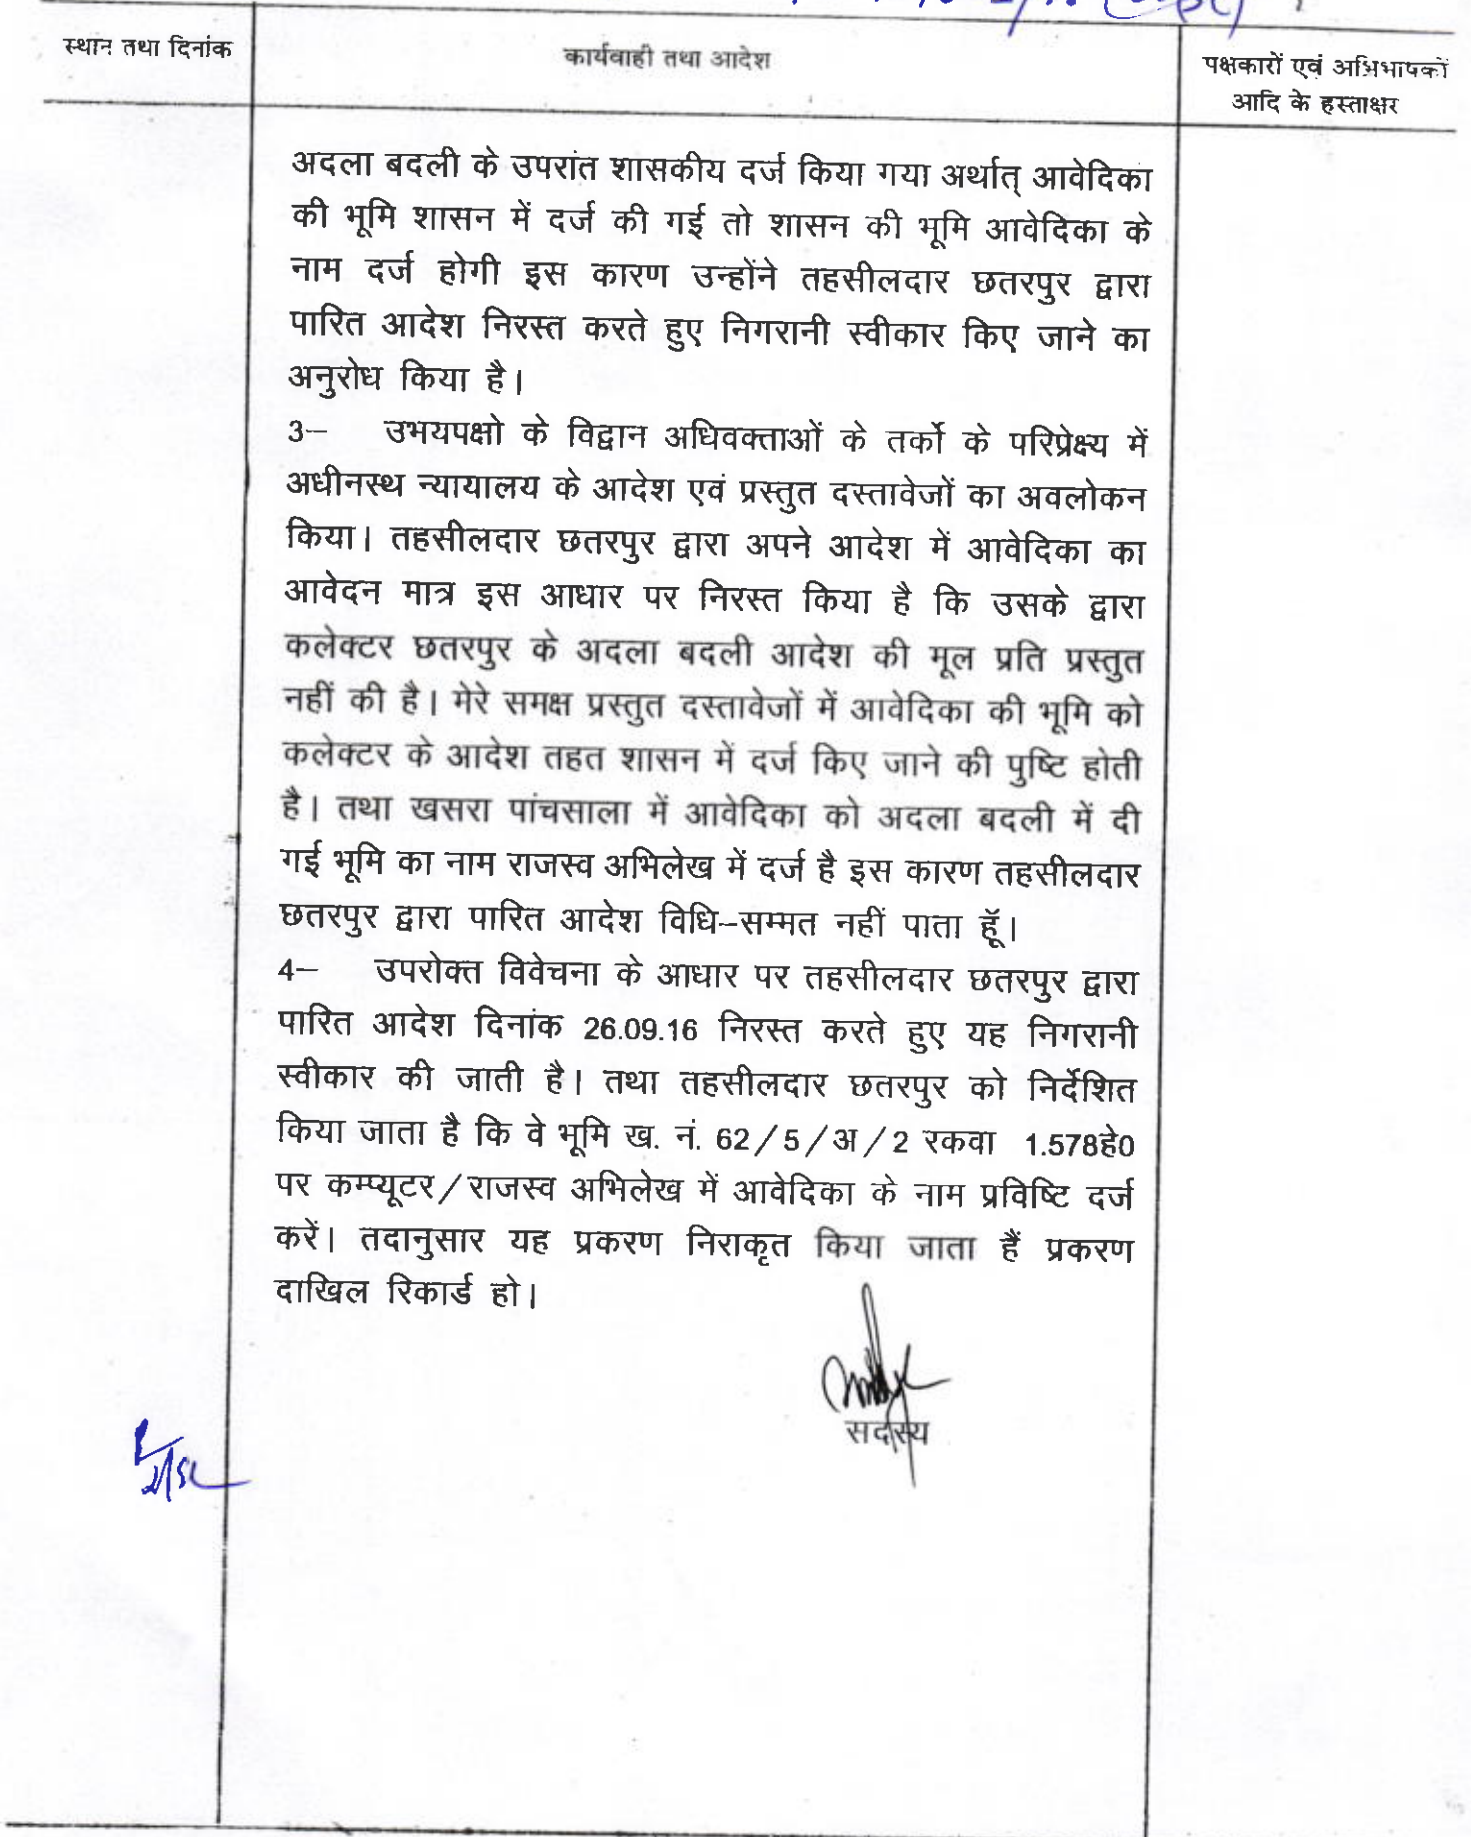 स्थान तथा दिनांक
कार्यवाही तथा आदेश
पक्षकारों एवं अभिभाषकों
आदि के हस्ताक्षर
अदला बदली के उपरांत शासकीय दर्ज किया गया अर्थात् आवेदिका
की भूमि शासन में दर्ज की गई तो शासन की भूमि आवेदिका के
नाम दर्ज होगी इस कारण उन्होंने तहसीलदार छतरपुर द्वारा
पारित आदेश निरस्त करते हुए निगरानी स्वीकार किए जाने का
अनुरोध किया है।
3– उभयपक्षो के विद्वान अधिवक्ताओं के तर्को के परिप्रेक्ष्य में
अधीनस्थ न्यायालय के आदेश एवं प्रस्तुत दस्तावेजों का अवलोकन
किया। तहसीलदार छतरपुर द्वारा अपने आदेश में आवेदिका का
आवेदन मात्र इस आधार पर निरस्त किया है कि उसके द्वारा
कलेक्टर छतरपुर के अदला बदली आदेश की मूल प्रति प्रस्तुत
नहीं की है। मेरे समक्ष प्रस्तुत दस्तावेजों में आवेदिका की भूमि को
कलेक्टर के आदेश तहत शासन में दर्ज किए जाने की पुष्टि होती
है। तथा खसरा पांचसाला में आवेदिका को अदला बदली में दी
गई भूमि का नाम राजस्व अभिलेख में दर्ज है इस कारण तहसीलदार
छतरपुर द्वारा पारित आदेश विधि–सम्मत नहीं पाता हूॅ।
4– उपरोक्त विवेचना के आधार पर तहसीलदार छतरपुर द्वारा
पारित आदेश दिनांक 26.09.16 निरस्त करते हुए यह निगरानी
स्वीकार की जाती है। तथा तहसीलदार छतरपुर को निर्देशित
किया जाता है कि वे भूमि ख. नं. 62/5/अ/2 रकवा 1.578हे0
पर कम्प्यूटर/राजस्व अभिलेख में आवेदिका के नाम प्रविष्टि दर्ज
करें। तदानुसार यह प्रकरण निराकृत किया जाता हैं प्रकरण
दाखिल रिकार्ड हो।
सदस्य